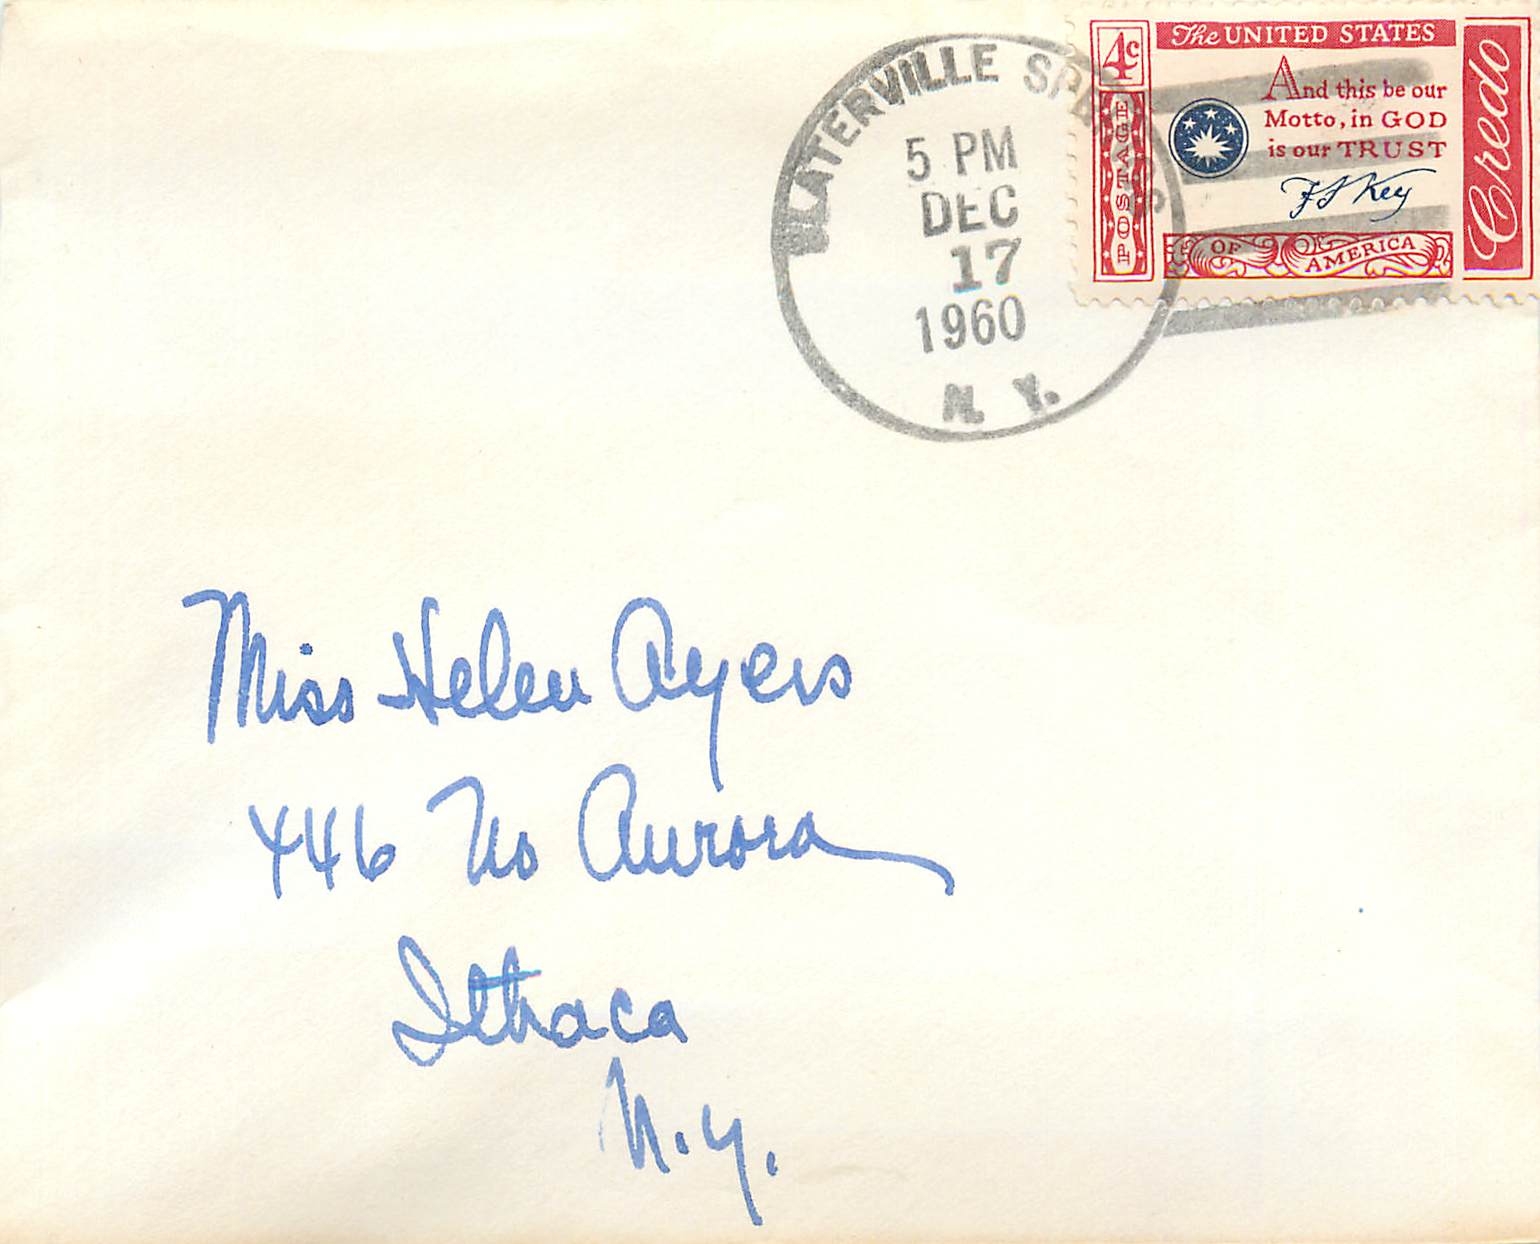 SLATERVILLE SPRINGS
5 PM
DEC
17
1960
N. Y.
4c
POSTAGE
The UNITED STATES
And this be our
Motto, in GOD
is our TRUST
F S Key
OF AMERICA
Credo
Miss Helen Ayers
446 No Aurora
Ithaca
N.Y.